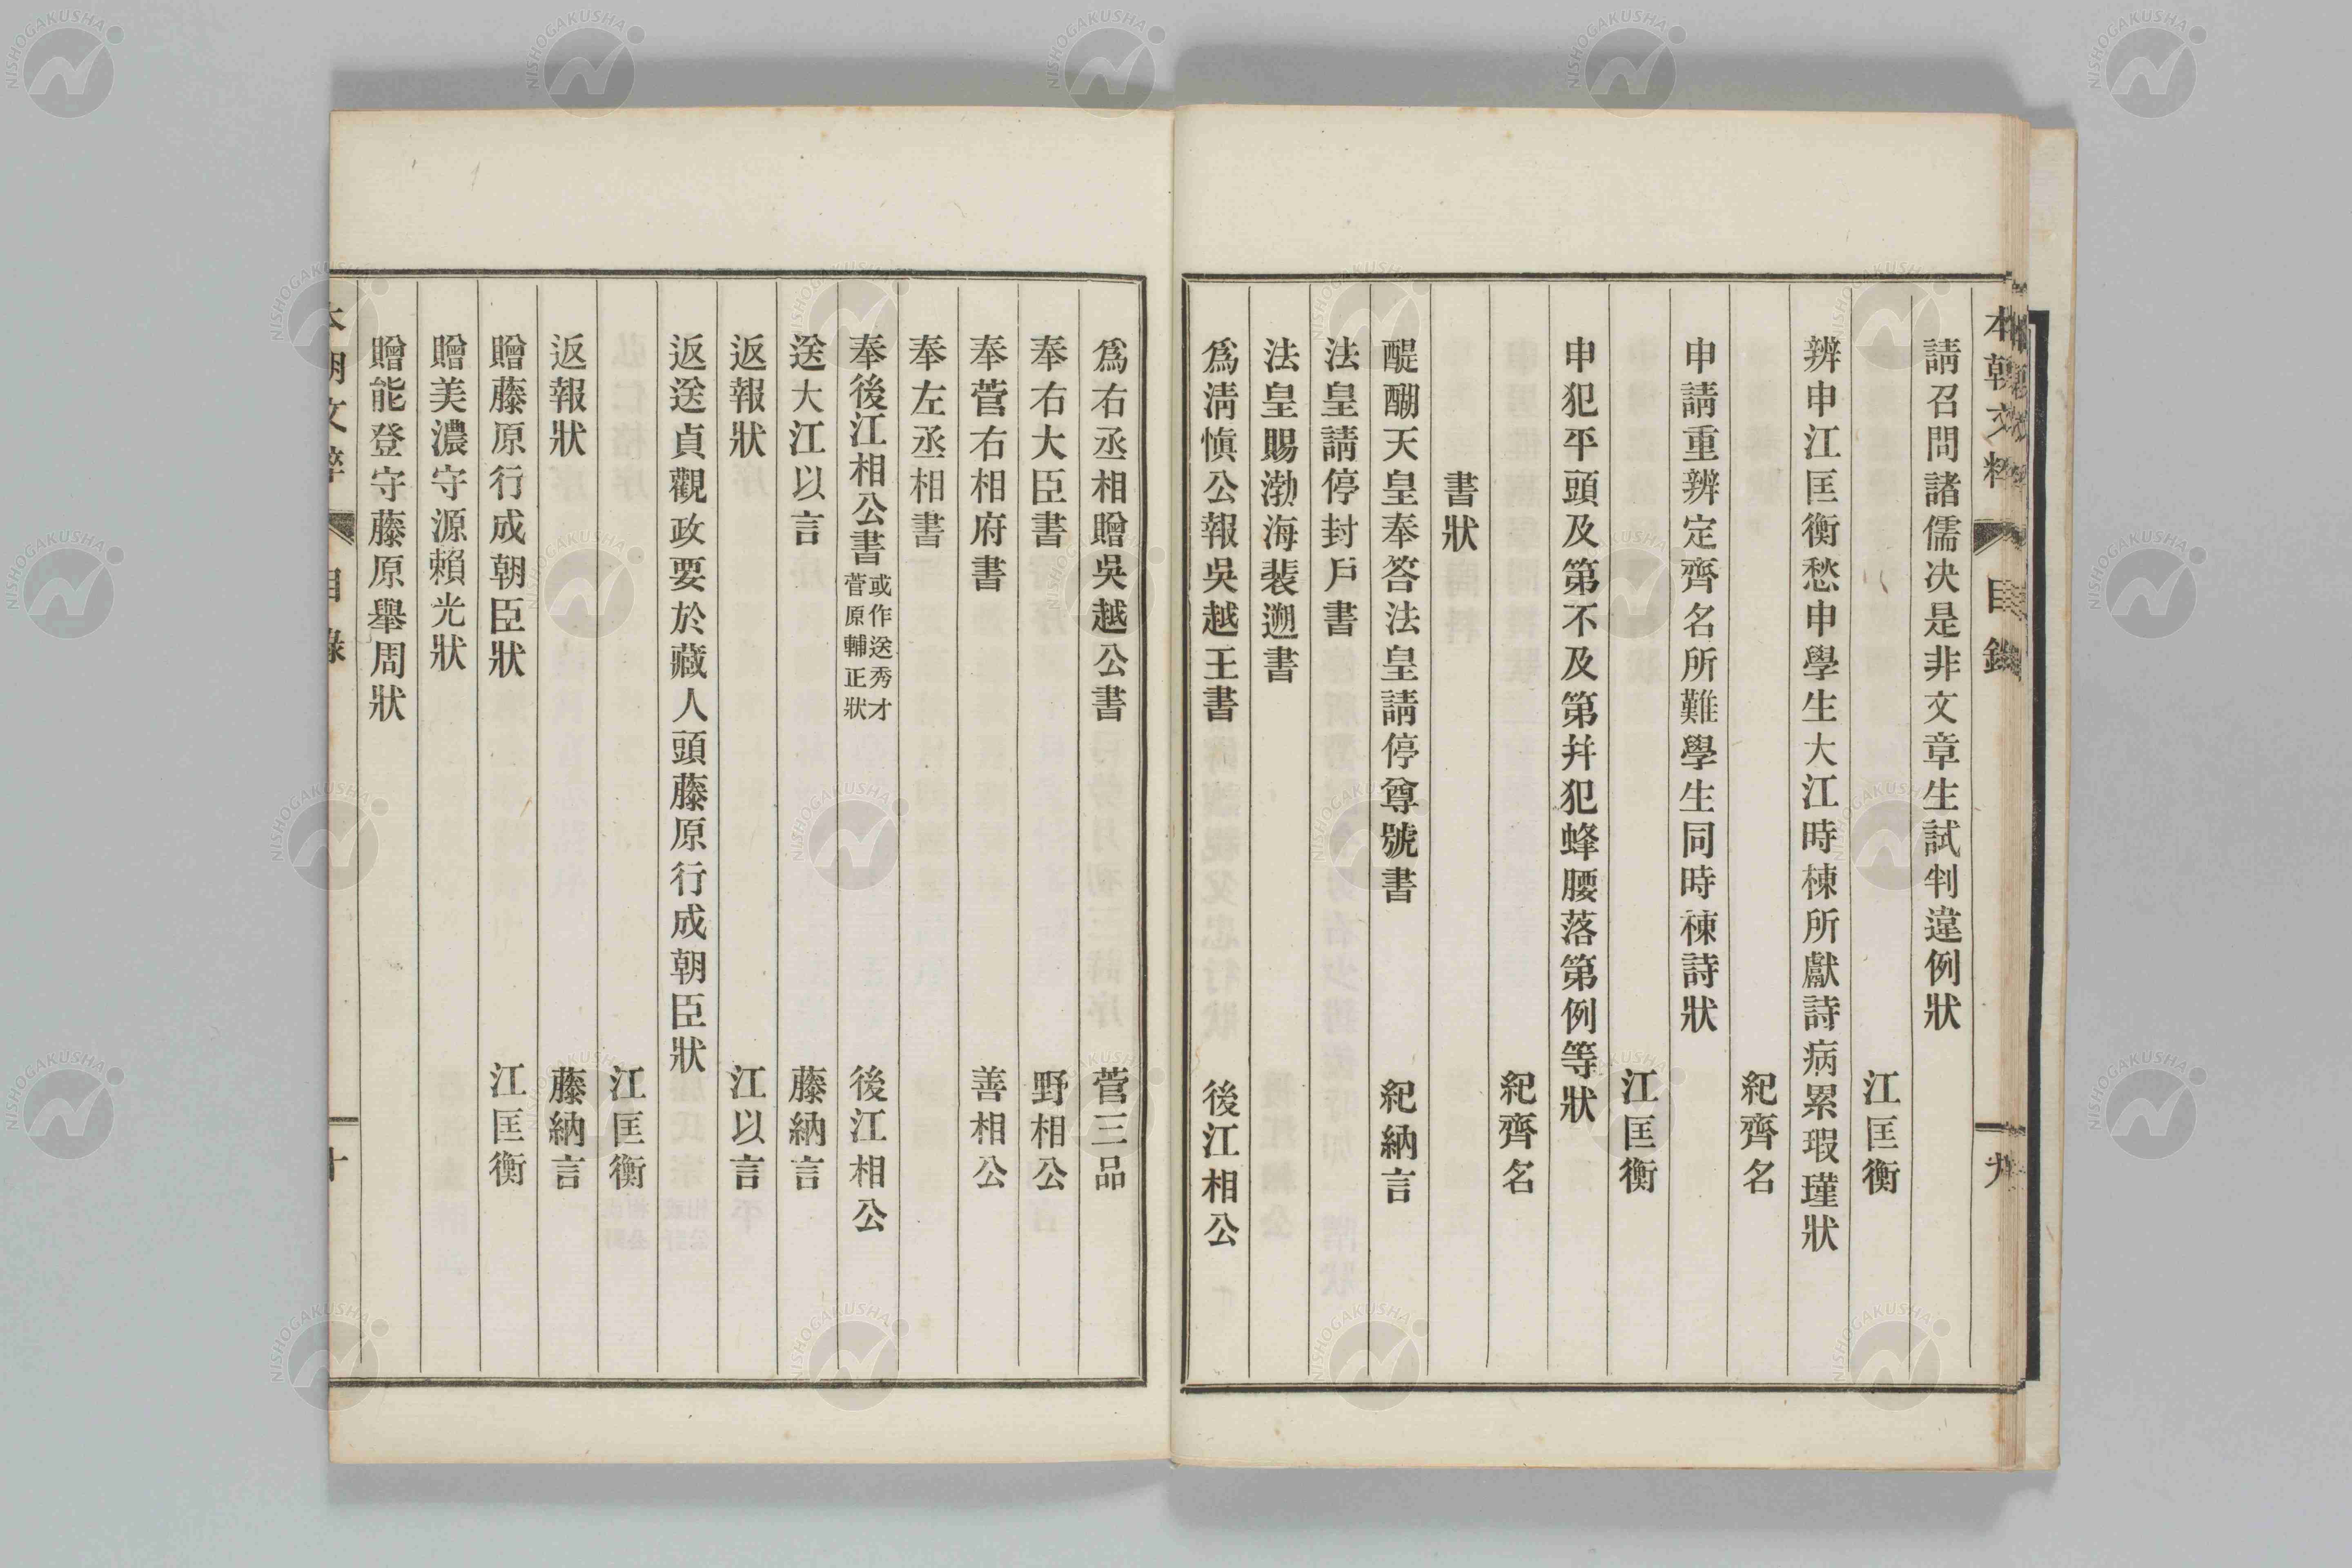 本朝文粹 目錄 九
請召問諸儒决是非文章生試判違例狀
江匡衡
辨申江匡衡愁申學生大江時棟所獻詩病累瑕瑾狀
紀齊名
申請重辨定齊名所難學生同時棟詩狀
江匡衡
申犯平頭及第不及第幷犯蜂腰落第例等狀
紀齊名
書狀
醍醐天皇奉答法皇請停尊號書 紀納言
法皇請停封戶書
法皇賜渤海裴遡書
爲淸愼公報吳越王書 後江相公
爲右丞相贈吳越公書 菅三品
奉右大臣書 野相公
奉菅右相府書 善相公
奉左丞相書
奉後江相公書 或作送秀才菅原輔正狀 後江相公
送大江以言 藤納言
返報狀 江以言
返送貞觀政要於藏人頭藤原行成朝臣狀
江匡衡
返報狀 藤納言
贈藤原行成朝臣狀 江匡衡
贈美濃守源賴光狀
贈能登守藤原擧周狀
本朝文粹 目錄 十
NISHOGAKUSHA